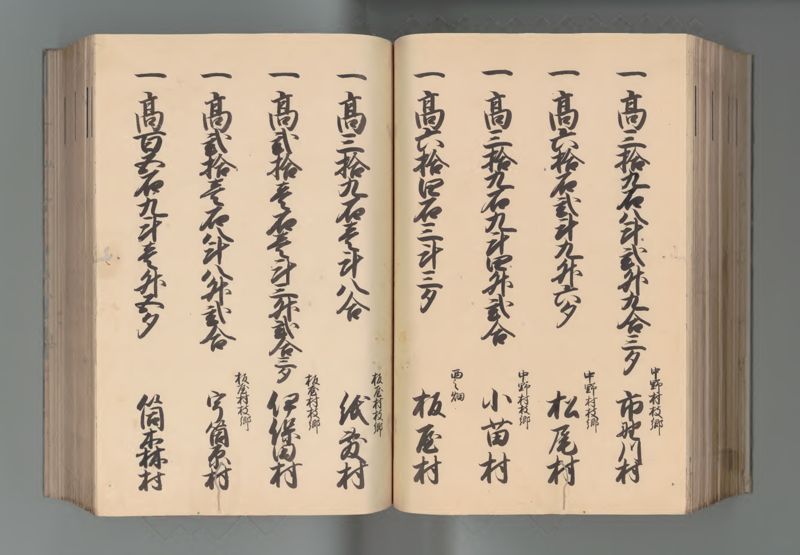 一 高三拾九石八斗弐升九合三夕
中野村枝郷
市野川村
一 高六拾石弐斗九升六夕
中野村枝郷
松尾村
一 高三拾九石九斗四升弐合
中野村枝郷
小苗村
一 高六拾四石三斗三夕
西々畑
板屋村
一 高三拾九石壱斗八合
板屋村枝郷
紙敷村
一 高弐拾壱石壱斗三升弐合三夕
板屋村枝郷
伊保田村
一 高弐拾壱石八斗八升弐合
板屋村枝郷
宇筒原村
一 高百五石九斗壱升五夕
筒森村